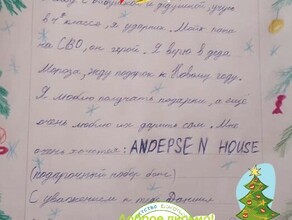 в 4 классе, я ударник. Мой папа
на СВО, он герой. Я верю в деда
Мороза, жду подарок к Новому году.
Я люблю получать подарки, а ещё
очень люблю их дарить сам. Мне
очень хочется: ANDEPSEN HOUSE
(подарочный набор
С уважением к
Доброе письмо!